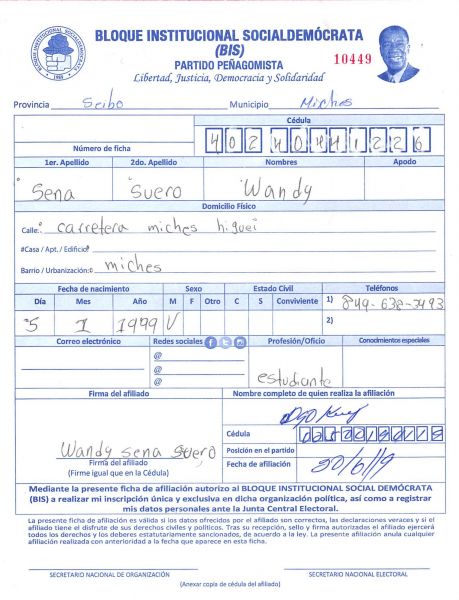 BLOQUE INSTITUCIONAL SOCIALDEMÓCRATA
(BIS)
PARTIDO PEÑAGOMISTA
Libertad, Justicia, Democracia y Solidaridad
10449
BLOQUE INSTITUCIONAL SOCIALDEMÓCRATA
Provincia Seibo Municipio Miches
Número de ficha
Cédula
1er. Apellido 2do. Apellido Nombres Apodo
Sena Suero Wandy
Domicilio Físico
Calle: carretera miches higuei
#Casa / Apt. / Edificio:
Barrio / Urbanización: miches
Fecha de nacimiento Sexo Estado Civil Teléfonos
Día Mes Año M F Otro C S Conviviente 1) 849-638-3493
5 1 1999 2)
Correo electrónico Redes sociales Profesión/Oficio Conocimientos especiales
@
@
@
estudiante
Firma del afiliado Nombre completo de quien realiza la afiliación
Cédula
Wandy sena suero
Posición en el partido
Firma del afiliado
(Firme igual que en la Cédula)
Fecha de afiliación 30/6/19
Mediante la presente ficha de afiliación autorizo al BLOQUE INSTITUCIONAL SOCIAL DEMÓCRATA
(BIS) a realizar mi inscripción única y exclusiva en dicha organización política, así como a registrar
mis datos personales ante la Junta Central Electoral.
La presente ficha de afiliación es válida si los datos ofrecidos por el afiliado son correctos, las declaraciones veraces y si el
afiliado tiene el disfrute de sus derechos civiles y políticos. Tras su recepción, sello y firma autorizados el afiliado ejercerá
todos los derechos y los deberes estatutariamente sancionados, de acuerdo a la ley. La presente afiliación anula cualquier
afiliación realizada con anterioridad a la fecha que aparece en esta ficha.
SECRETARIO NACIONAL DE ORGANIZACIÓN SECRETARIO NACIONAL ELECTORAL
(Anexar copia de cédula del afiliado)